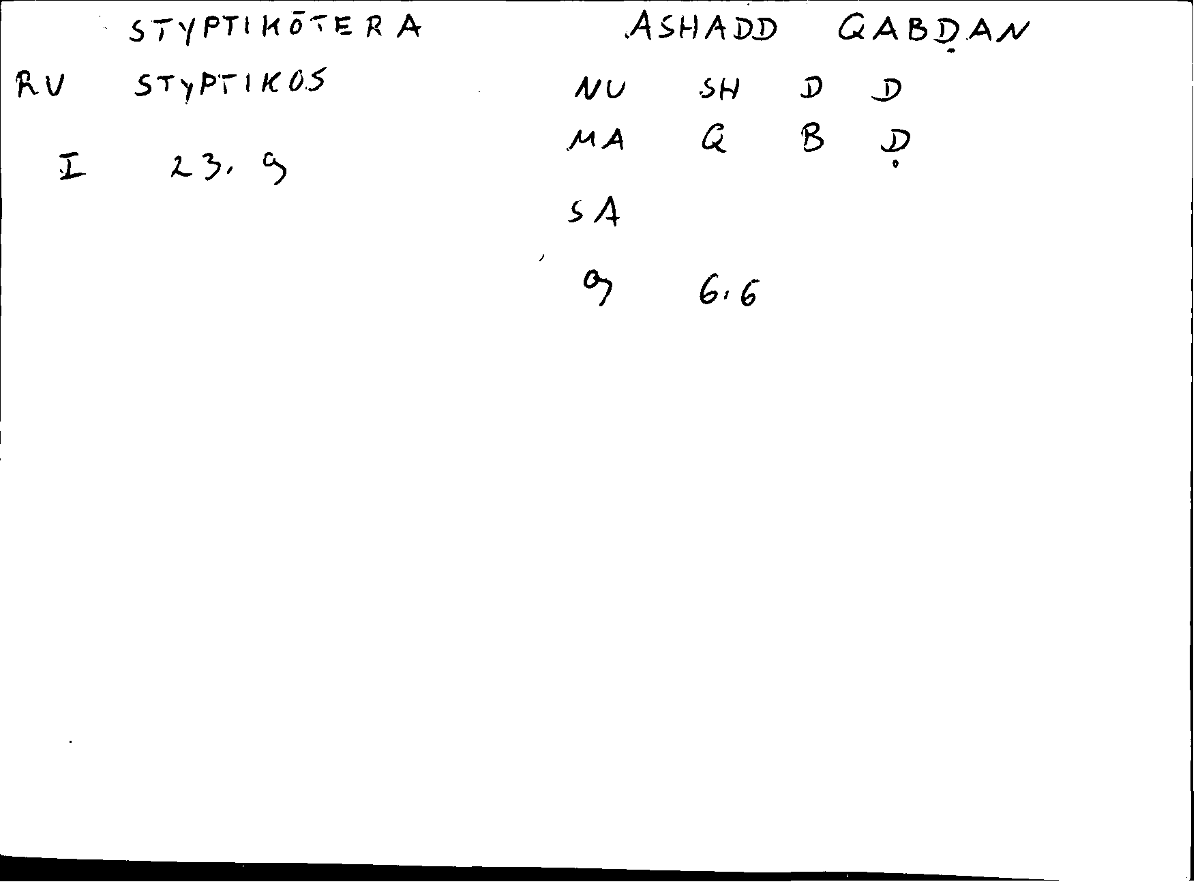 STYPTIKŌTERA ASHADD QABḌAN
RU STYPTIKOS NU SH D D
MA Q B Ḍ
I 23. 9
SA
9 6.6